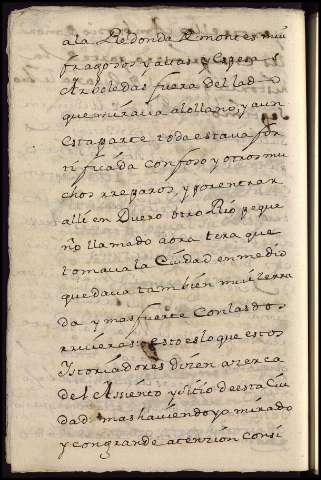 a la Redonda Rmontes mui
fragosos y altas y Espesas
Arboledas fuera del lado
que mirava alo llano, y aun
esta parte toda estava for
tificada con foso y otros mu
chos rreparos, y por entrar
alli en Duero otro Rio peque
ño llamado aora tera que
tomava la Ciudad en medio
quedava tambien mui zerra
da y mas fuerte Con las dos
rriveras: esto es lo que estos
Ystoriadores dizen azerca
del Assiento y sitio de esta Ciu
dad mas haviendo yo mirado
y con grande atenzion Consi